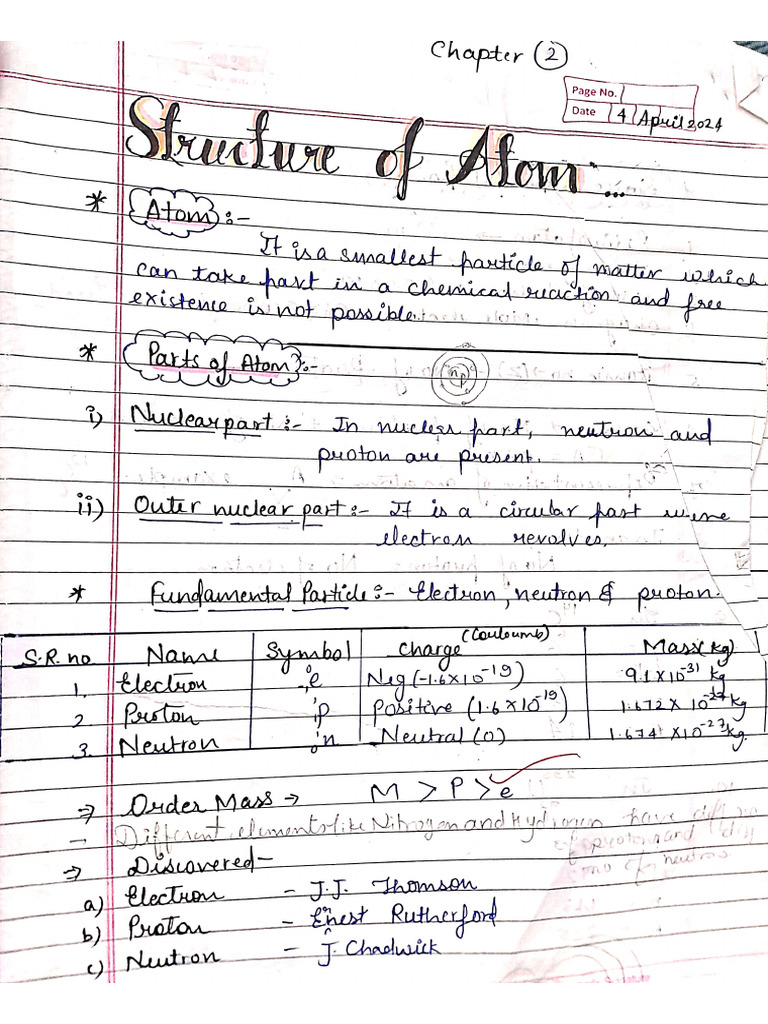 Chapter ②
Page No.
Date 4 April 2024
Structure of Atom...
* Atom :-
It is a smallest particle of matter which
can take part in a chemical reaction and free
existence is not possible.
* Parts of Atom :-
n p
i) Nuclear part :- In nuclear part, neutron and
proton are present.
ii) Outer nuclear part :- It is a circular part where
electron revolves.
* Fundamental Particle :- Electron, neutron & proton.
S.R. no Name Symbol Charge (Couloumb) Mass(kg)
1. Electron ₋₁e⁰ Neg (-1.6×10⁻¹⁹) 9.1×10⁻³¹ kg
2. Proton ₁p¹ Positive (1.6×10⁻¹⁹) 1.672×10⁻²⁷ kg
3. Neutron ₀n¹ Neutral (0) 1.674×10⁻²⁷ kg.
⇒ Order Mass → M > P > e
- Different elements like Nitrogen and Hydrogen have diff no
of proton and diff
no of neutrons
⇒ Discovered -
a) Electron - J.J. Thomson
b) Proton - Ernest Rutherford
c) Neutron - J. Chadwick